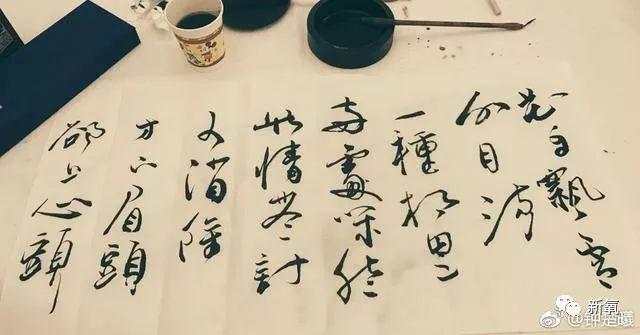 花自飄零
水自流
一種相思
兩處閒愁
此情無計
可消除
才下眉頭
卻上心頭
新氧
@钟楚曦